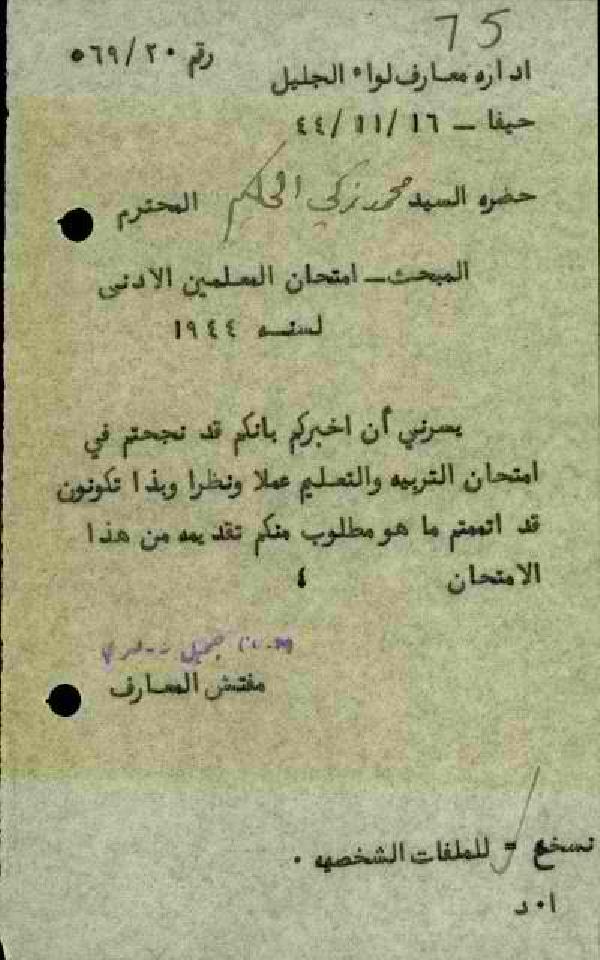 75
رقم ٥٦٩/٢٠
اداره معارف لواء الجليل
حيفا – ٤٤/١١/١٦
حضره السيد محمد زكي الحكيم المحترم
المبحث – امتحان المعلمين الادنى
لسنه ١٩٤٤
يسرني أن اخبركم بانكم قد نجحتم في
امتحان التربيه والتعليم عملا ونظرا وبذا تكونون
قد اتممتم ما هو مطلوب منكم تقديمه من هذا
الامتحان ٤
جميل
مفتش المعارف
نسخع = للملفات الشخصيه .
ا٠د